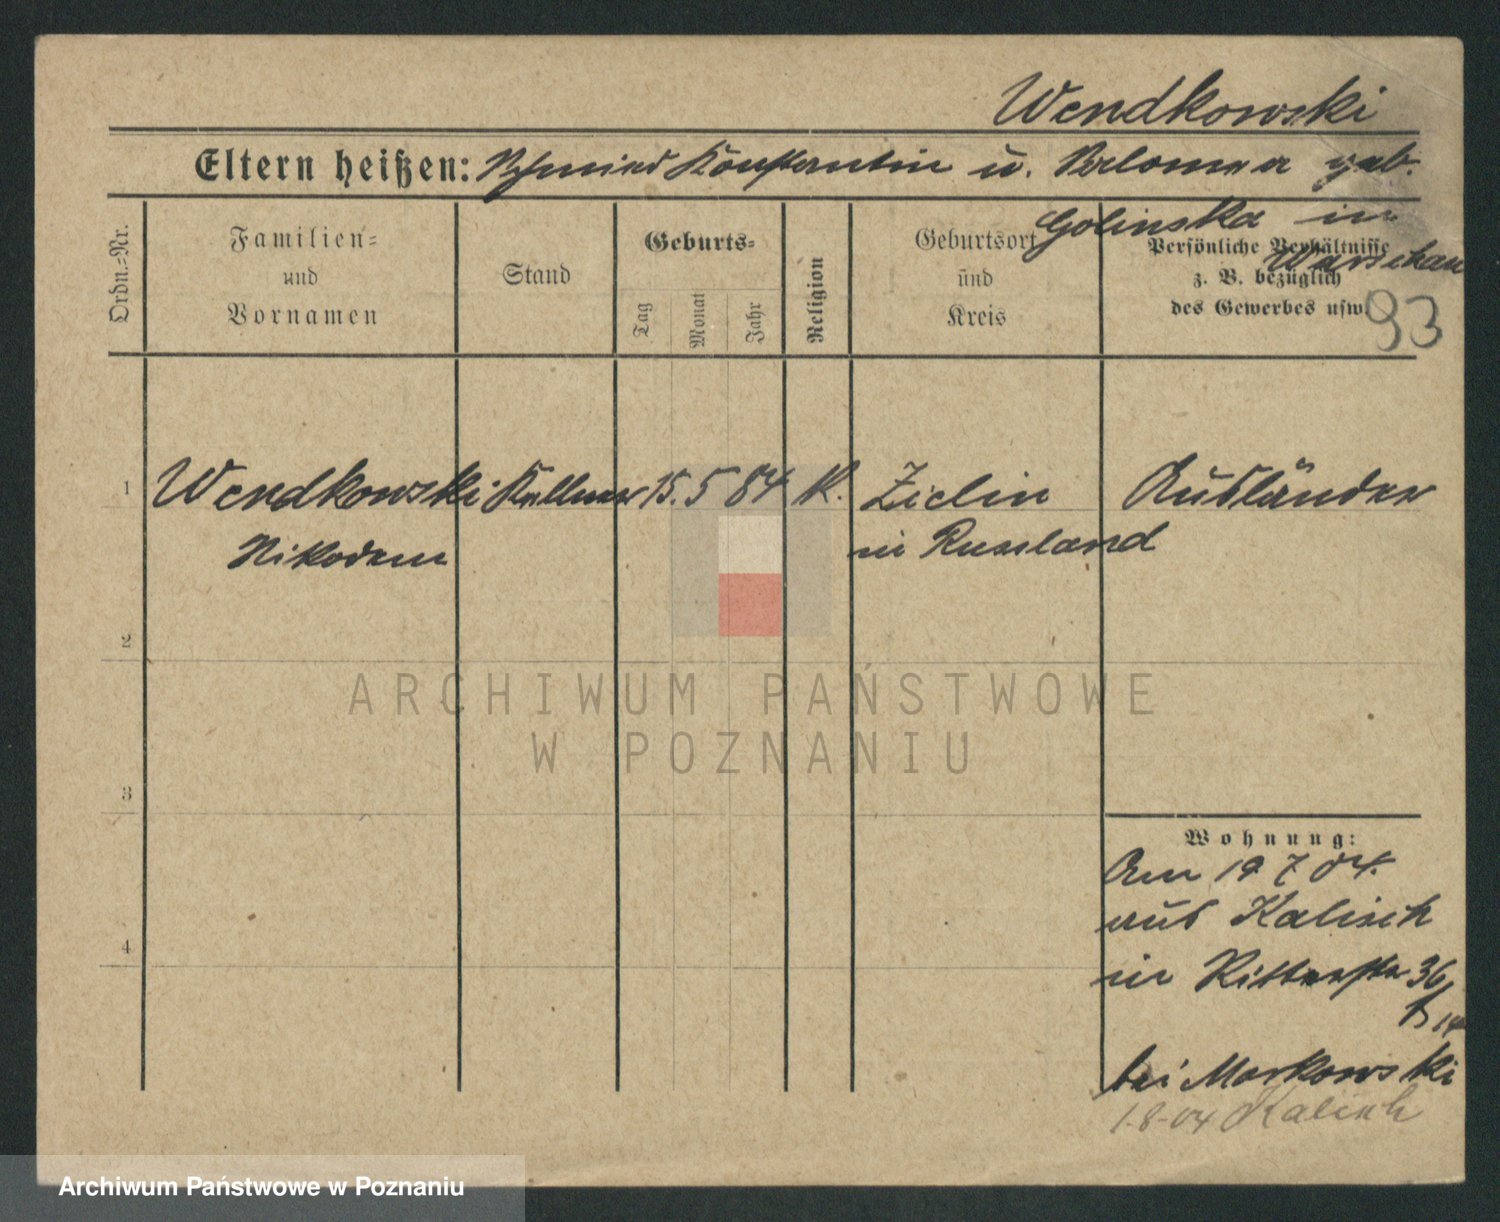 Wendkowski
Eltern heißen: Schmied Konstantin u. Salomea geb.
Golinska in
Warschau
93
Ordn.-Nr.
Familien-
und
Vornamen
Stand
Geburts-
Tag
Monat
Jahr
Religion
Geburtsort
und
Kreis
Persönliche Verhältnisse
z. B. bezüglich
des Gewerbes usw.
1 Wendkowski Kellner 15. 5 84 K. Zielin Ausländer
Nikodem in Russland
2
3
4
ARCHIWUM PAŃSTWOWE
W POZNANIU
Wohnung:
Am 19 7 04.
aus Kalisch
in Ritterstr 36
bei Morkowski
1-8-04 Kalisch
Archiwum Państwowe w Poznaniu